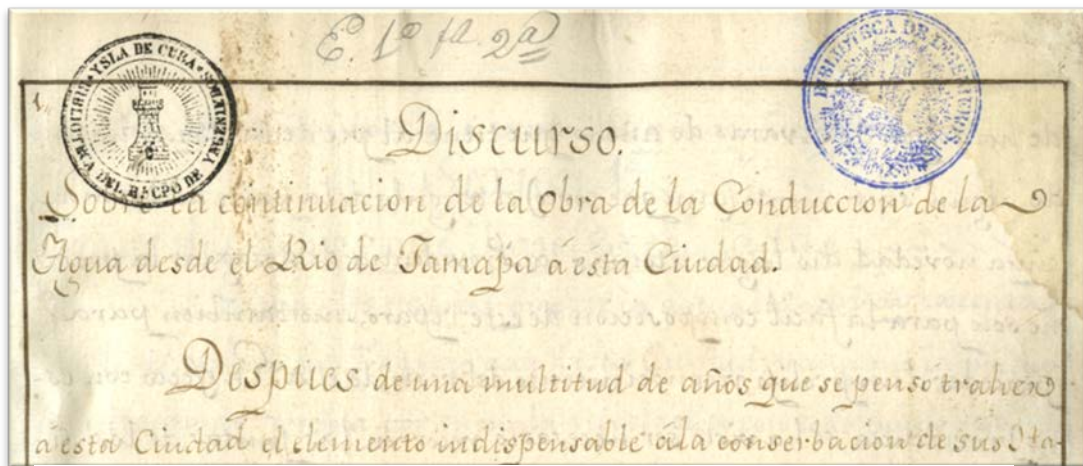 E. 1ª fª 2ª
YSLA DE CUBA
BIBLIOTECA DEL Rl. CPO DE YNGENIEROS
BIBLIOTECA DE INGENIEROS
1.
Discurso.
Sobre la continuacion de la Obra de la Conduccion de la
Agua desde el Rio de Jamapa á esta Ciudad.
Despues de una multitud de años que se penso traher
a esta Ciudad el elemento indispensable ala conserbacion de sus Ha-